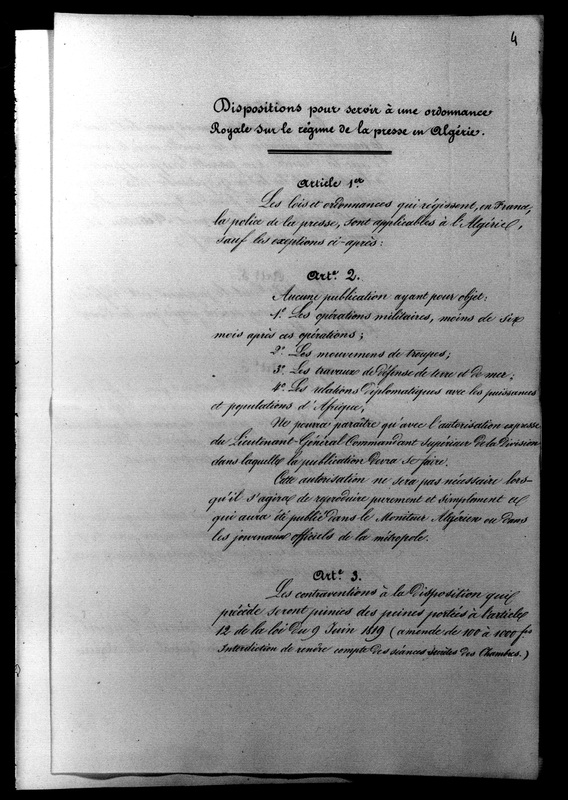 4
Dispositions pour servir à une ordonnance
Royale sur le régime de la presse en Algérie.
Article 1er
Les lois et ordonnances qui régissent, en France,
la police de la presse, sont applicables à l'Algérie,
sauf les exeptions ci-après:
Arte 2.
Aucune publication ayant pour objet:
1º Les opérations militaires, moins de six
mois après ces opérations;
2º Les mouvemens de troupes;
3º Les travaux de défense de terre et de mer;
4º Les relations diplomatiques avec les puissances
et populations d'Afrique,
Ne pourra paraître qu'avec l'autorisation expresse
du Lieutenant-Général Commandant Supérieur de la Division
dans laquelle la publication devra se faire.
Cette autorisation ne sera pas nécessaire lors-
qu'il s'agira de reproduire purement et simplement ce
qui aura été publié dans le Moniteur Algérien ou dans
les journaux officiels de la métropole.
Arte 3.
Les contraventions à la Disposition qui
précède seront punies des peines portées à l'article
12 de la loi du 9 Juin 1819 (amende de 100 à 1000 frs
Interdiction de rendre compte des séances secrètes des Chambres.)